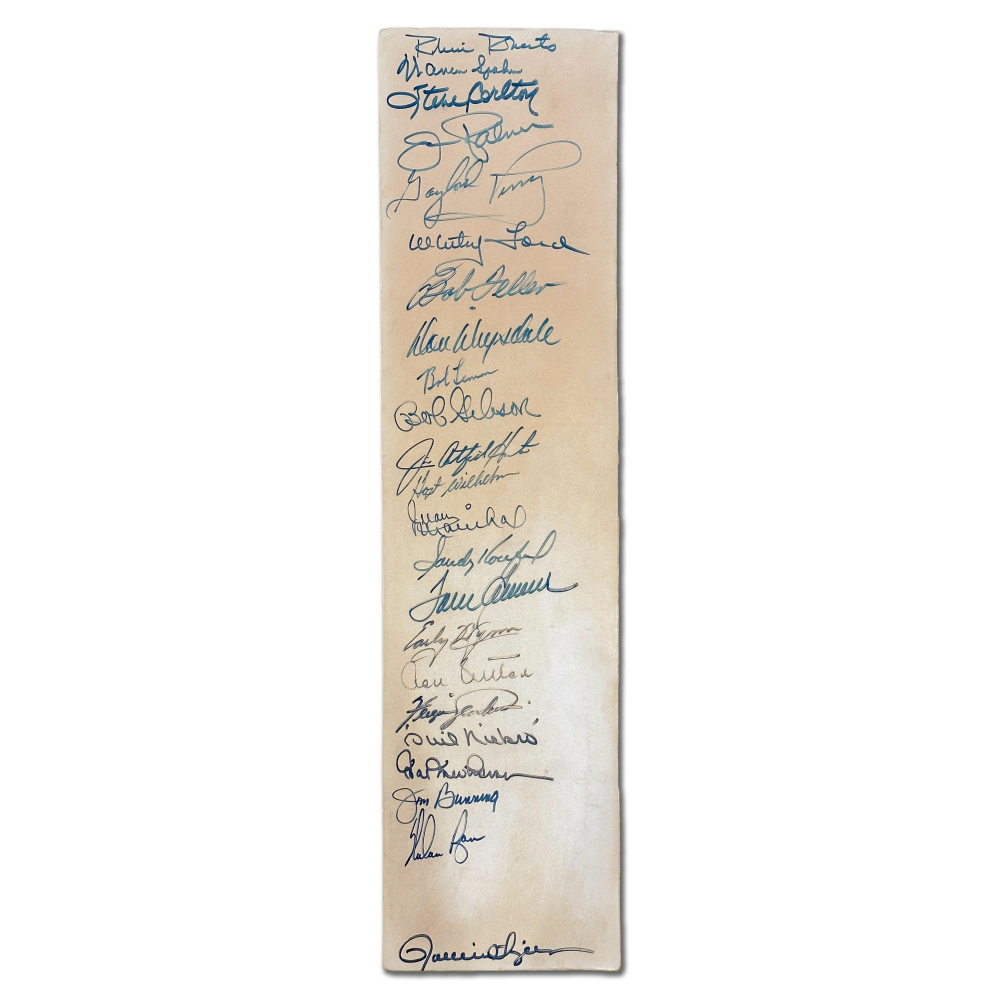 Robin Roberts
Warren Spahn
Steve Carlton
Jim Palmer
Gaylord Perry
Whitey Ford
Bob Feller
Don Drysdale
Bob Lemon
Bob Gibson
Jim "Catfish" Hunter
Hoyt Wilhelm
Juan
Marichal
Sandy Koufax
Tom Seaver
Early Wynn
Don Sutton
Fergie Jenkins
Phil Niekro
Hal Newhouser
Jim Bunning
Nolan Ryan
Rollie Fingers